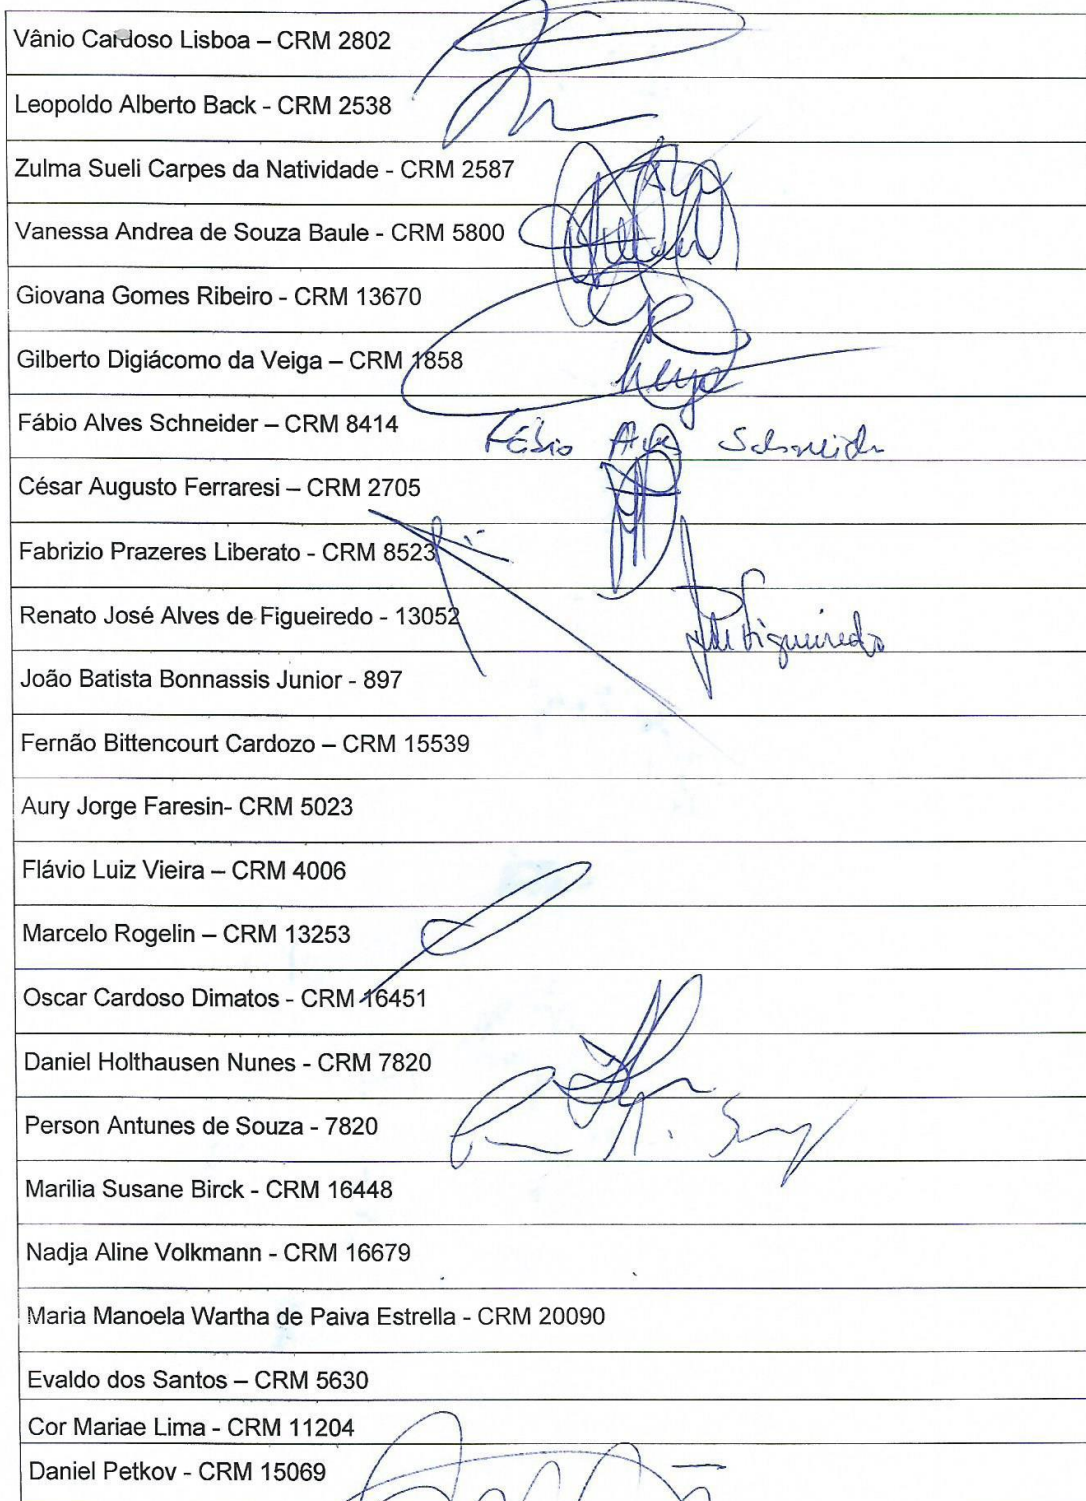 Vânio Cardoso Lisboa – CRM 2802
Leopoldo Alberto Back - CRM 2538
Zulma Sueli Carpes da Natividade - CRM 2587
Vanessa Andrea de Souza Baule - CRM 5800
Giovana Gomes Ribeiro - CRM 13670
Gilberto Digiácomo da Veiga – CRM 1858
Fábio Alves Schneider – CRM 8414
Fábio Alves Schneider
César Augusto Ferraresi – CRM 2705
Fabrizio Prazeres Liberato - CRM 8523
Renato José Alves de Figueiredo - 13052
Figueiredo
João Batista Bonnassis Junior - 897
Fernão Bittencourt Cardozo – CRM 15539
Aury Jorge Faresin- CRM 5023
Flávio Luiz Vieira – CRM 4006
Marcelo Rogelin – CRM 13253
Oscar Cardoso Dimatos - CRM 16451
Daniel Holthausen Nunes - CRM 7820
Person Antunes de Souza - 7820
Marilia Susane Birck - CRM 16448
Nadja Aline Volkmann - CRM 16679
Maria Manoela Wartha de Paiva Estrella - CRM 20090
Evaldo dos Santos – CRM 5630
Cor Mariae Lima - CRM 11204
Daniel Petkov - CRM 15069